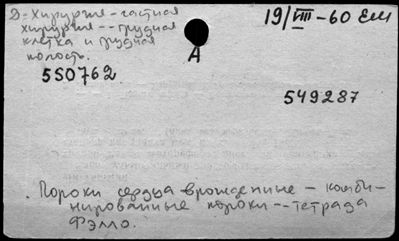 D=Хирургия-частная
хирургия--грудная
клетка и грудная
полость.
19/VIII-60 Ем
A
550762
549287
Пороки сердца врожденные - комби-
нированные пороки--тетрада
Фэлло.